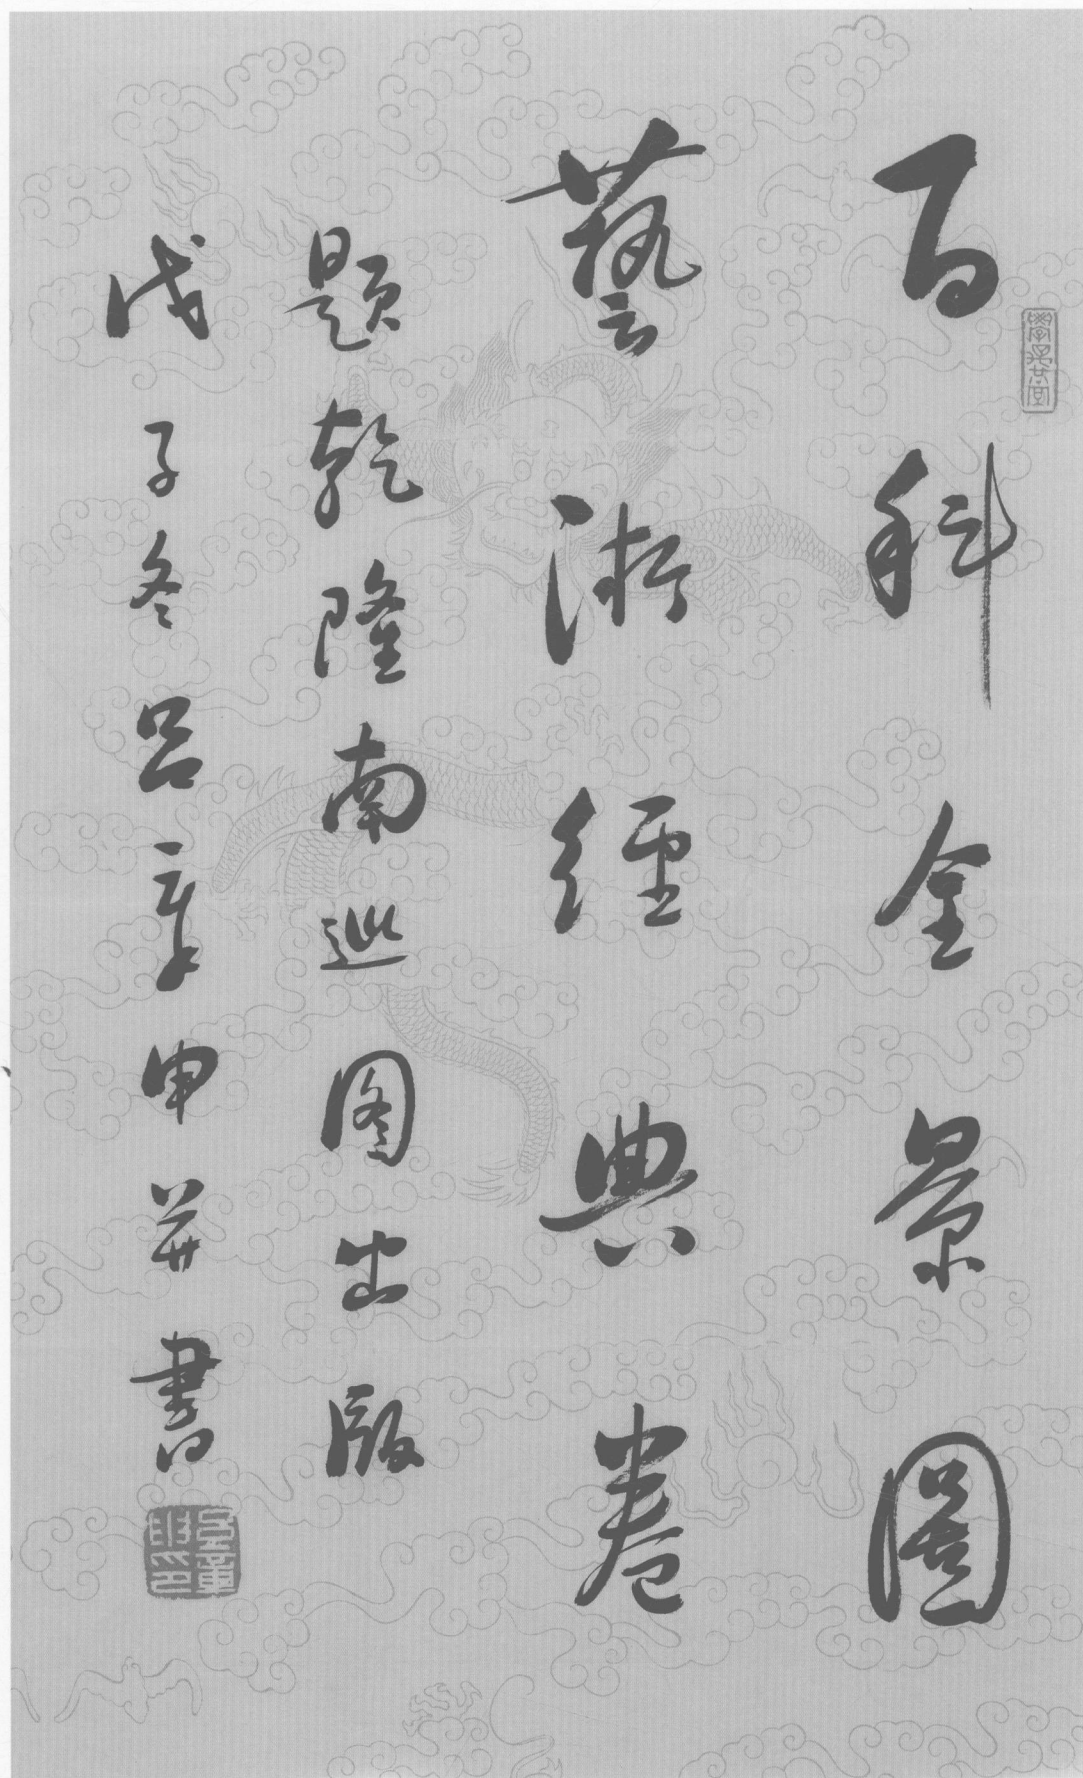 百科全景圖
藝術經典卷
題乾隆南巡图出版
戊子冬呂章申并書
呂章申印